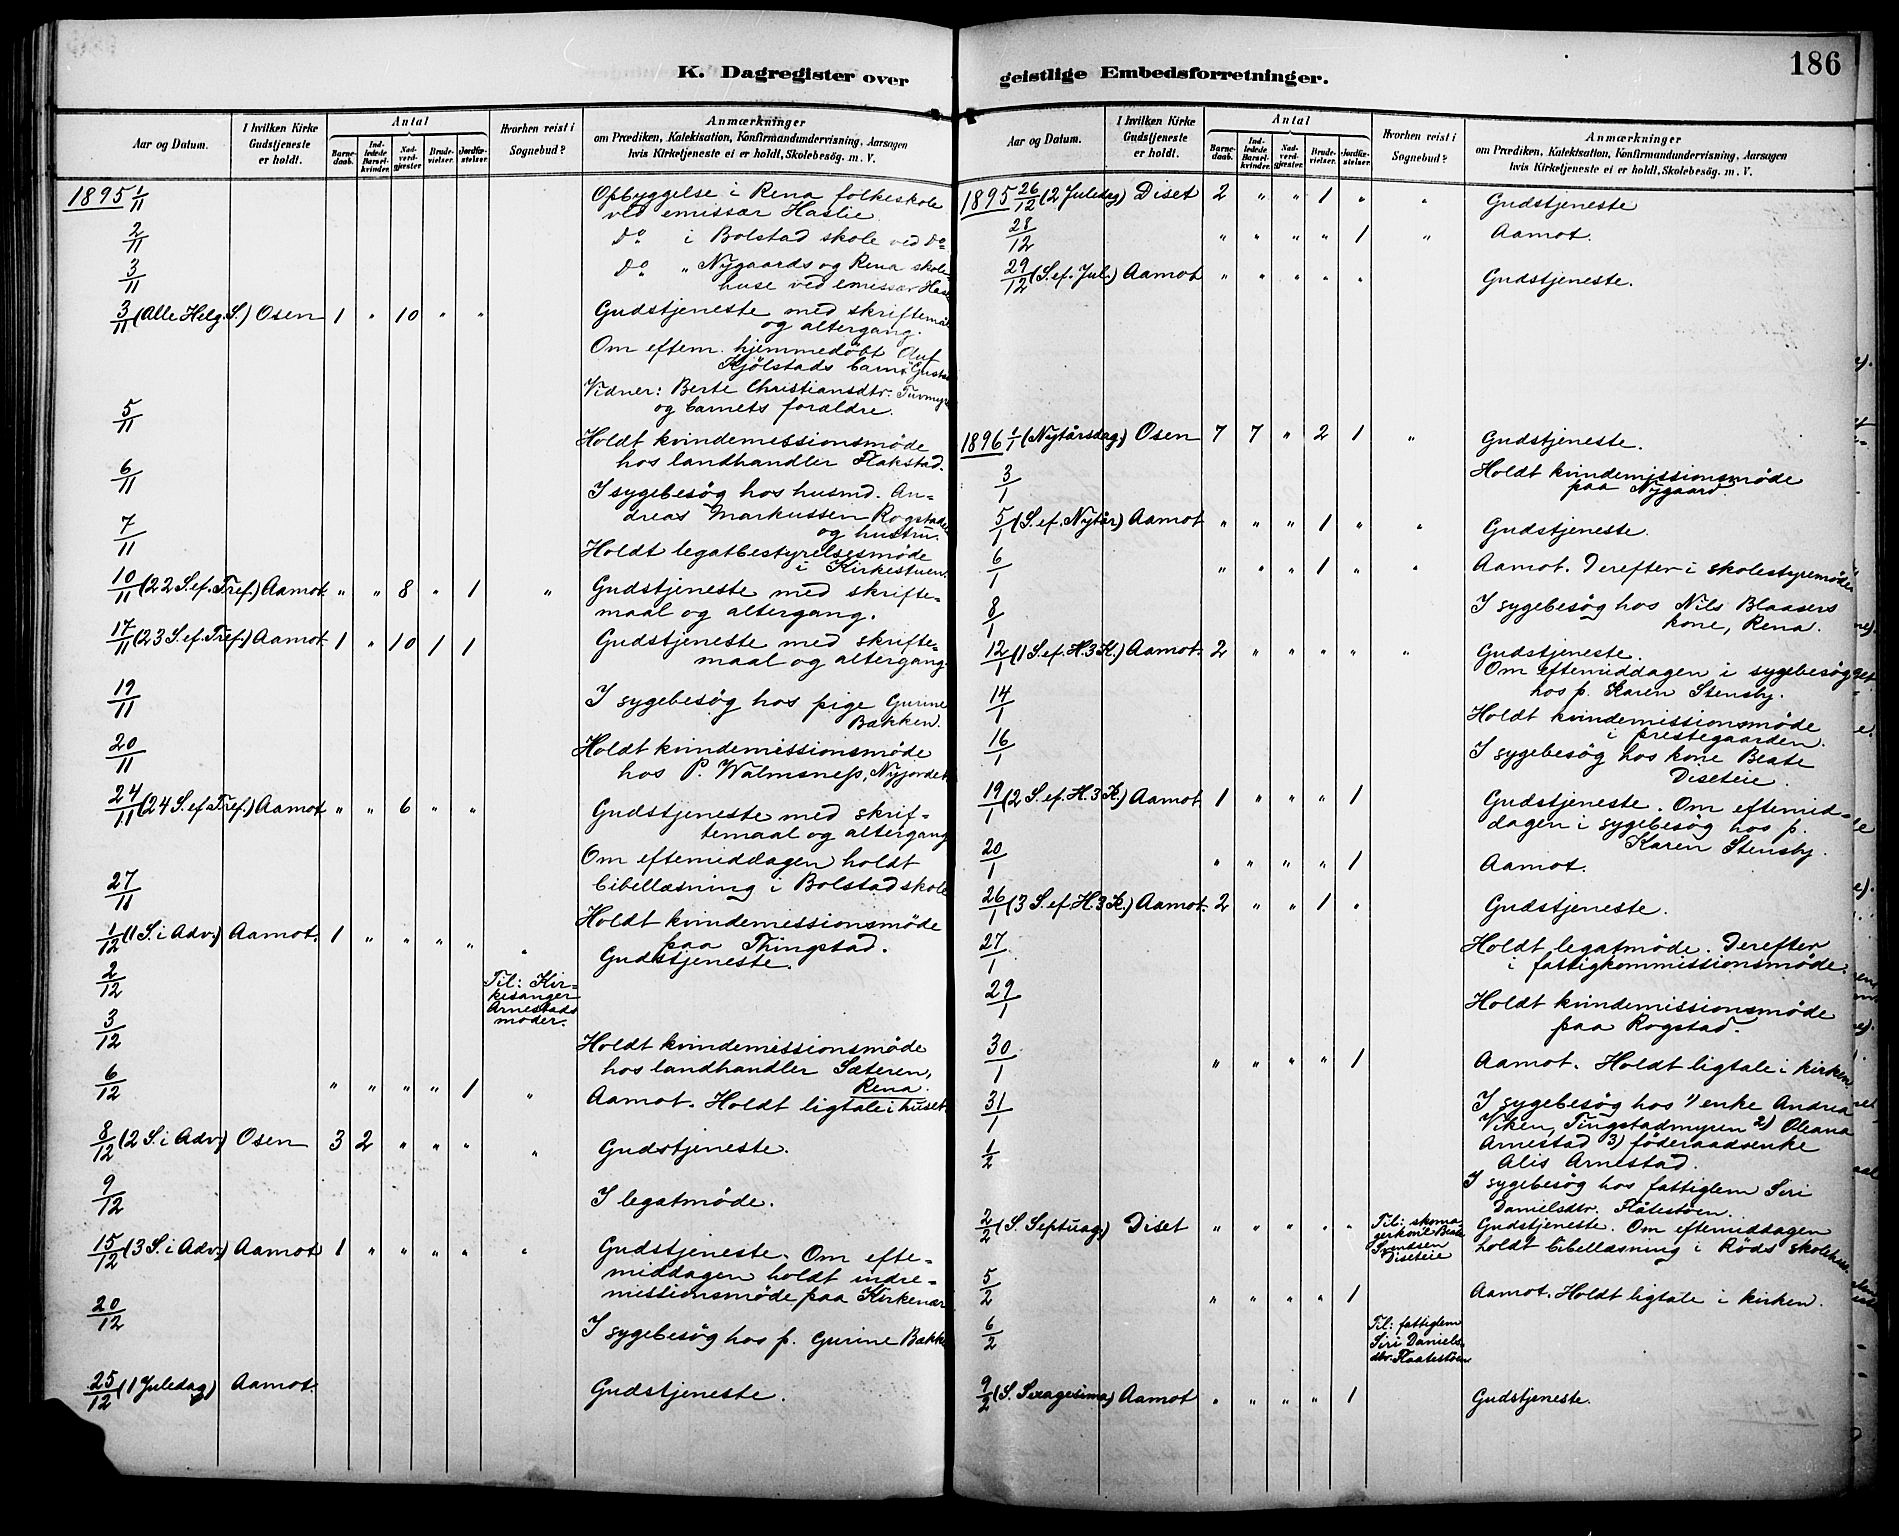 K. Dagregister over
Aar og Datum.
I hvilken Kirke Gudstjeneste er holdt.
Antal
Barnedaab.
Indledede Barselkvinder.
Nadverdgjæster.
Brudevielser.
Jordfæstelser.
Hvorhen reist i Sognebud?
Anmærkninger
om Prædiken, Katekisation, Konfirmandundervisning, Aarsagen
hvis Kirketjeneste ei er holdt, Skolebesög. m. V.
1895 1/11 Opbyggelse i Rena folkeskole
ved emissær Haslie.
2/11 Do i Bolstad skole ved Do
3/11 Do " Nygaards og Rena skole-
huse ved emissær
3/11 (Alle Helg. S.) Osen 1 " 10 " " Gudstjeneste med skriftemål
og altergang.
Om eftem. hjemmedöbt
Kjölstads barn:
Vidner: Berte Christiansdtr.
og barnets forældre.
5/11 Holdt kvindemissionsmöde
hos landhandler Flakstad.
6/11 I sygebesög hos husmd. An-
dreas Markussen
og hustru.
7/11 Holdt legatbestyrelsesmöde
i Kirkestuen.
10/11 (22 S. ef. Tref.) Aamot " " 8 " 1 " Gudstjeneste med skrifte-
maal og altergang.
17/11 (23 S. ef. Tref.) Aamot 1 " 10 1 1 Gudstjeneste med skrifte-
maal og altergang.
19/11 I sygebesög hos pige Gurine
Bækken.
20/11 Holdt kvindemissionsmöde
hos P. Walmsness, Nyjordet
24/11 (24 S. ef. Tref.) Aamot " " 6 " " Gudstjeneste med skrif-
temaal og altergang
Om eftemiddagen holdt
bibellæsning i Bolstad skole
27/11 Holdt kvindemissionsmöde
paa Thingstad.
1/12 (1 S. i Adv.) Aamot. 1 " " " " " Gudstjeneste.
2/12 Til: Kir-
kesanger
Arnestads
moder.
3/12 Holdt kvindemissionsmöde
hos landhandler Sæteren,
Rena.
6/12 " " " " 1 " Aamot. Holdt ligtale i huset.
8/12 (2 S. i Adv.) Osen 3 2 " " " " Gudstjeneste.
9/12 I legatmöde.
15/12 (3 S. i Adv.) Aamot 1 " " " " " Gudstjeneste. Om efte-
middagen holdt indre-
missionsmöde paa Kirkenær
20/12 I sygebesög hos p. Gurine
25/12 (1 Juledag) Aamot. Gudstjeneste.
geistlige Embedsforretninger.
186
Aar og Datum.
I hvilken Kirke Gudstjeneste er holdt.
Antal
Barnedaab.
Indledede Barselkvinder.
Nadverdgjæster.
Brudevielser.
Jordfæstelser.
Hvorhen reist i Sognebud?
Anmærkninger
om Prædiken, Katekisation, Konfirmandundervisning, Aarsagen
hvis Kirketjeneste ei er holdt, Skolebesög. m. V.
1895 26/12 (2 Juledag) Diset 2 " " 1 " " Gudstjeneste
28/12 " " " " 1 " Aamot.
29/12 (S. ef. Jul.) Aamot " " " " " Gudstjeneste.
1896 1/1 (Nytårsdag) Osen 7 7 " 2 1 " Gudstjeneste.
3/1 Holdt kvindemissionsmöde
paa Nygaard.
5/1 (S. ef. Nytår) Aamot " " " 1 " " Gudstjeneste.
6/1 " " " 1 " " Aamot. Derefter i skolestyremöde
8/1 I sygebesög hos Nils Blaasers
kone, Rena.
12/1 (1 S. ef. H. 3 K.) Aamot. 2 " " " " " Gudstjeneste.
Om eftemiddagen i sygebesög
hos p. Karen Stensby.
14/1 Holdt kvindemissionsmöde
i prestegaarden.
16/1 I sygebesög hos kone Beate
Diseteie.
19/1 (2 S. ef. H. 3 K.) Aamot 1 " " " 1 Gudstjeneste. Om eftemid-
dagen i sygebesög hos p.
Karen Stensby.
20/1 " " " " 1 Aamot.
26/1 (3 S. ef. H. 3 K.) Aamot. 2 " " 1 " Gudstjeneste.
27/1 Holdt legatmöde. Derefter
i fattigkommissionsmöde.
29/1 Holdt kvindemissionsmöde
paa Rogstad.
30/1 " " " " 1 Aamot. Holdt ligtale i kirken.
31/1 I sygebesög hos 1) enke Andrea
Viken, Tingstadmyren 2) Oleana
Arnestad 3) föderaadsenke
Alis Arnestad.
1/2 I sygebesög hos fattiglem Siri
Danielsdtr. Flåtestöen.
2/2 (S. Septuag.) Diset " " " " " Til: skoma-
gerkone Beate
Svendsen
Diseteie
Gudstjeneste. Om eftemiddagen
holdt bibellæsning i Röds skolehus.
5/2 " " " " 1 Aamot. Holdt ligtale i kirken.
6/2 Til: fattiglem
Siri Daniels-
dtr. Flaatestöen
9/2 (S. Sexagesima) Aamot " " " " 1 Gudstjeneste.